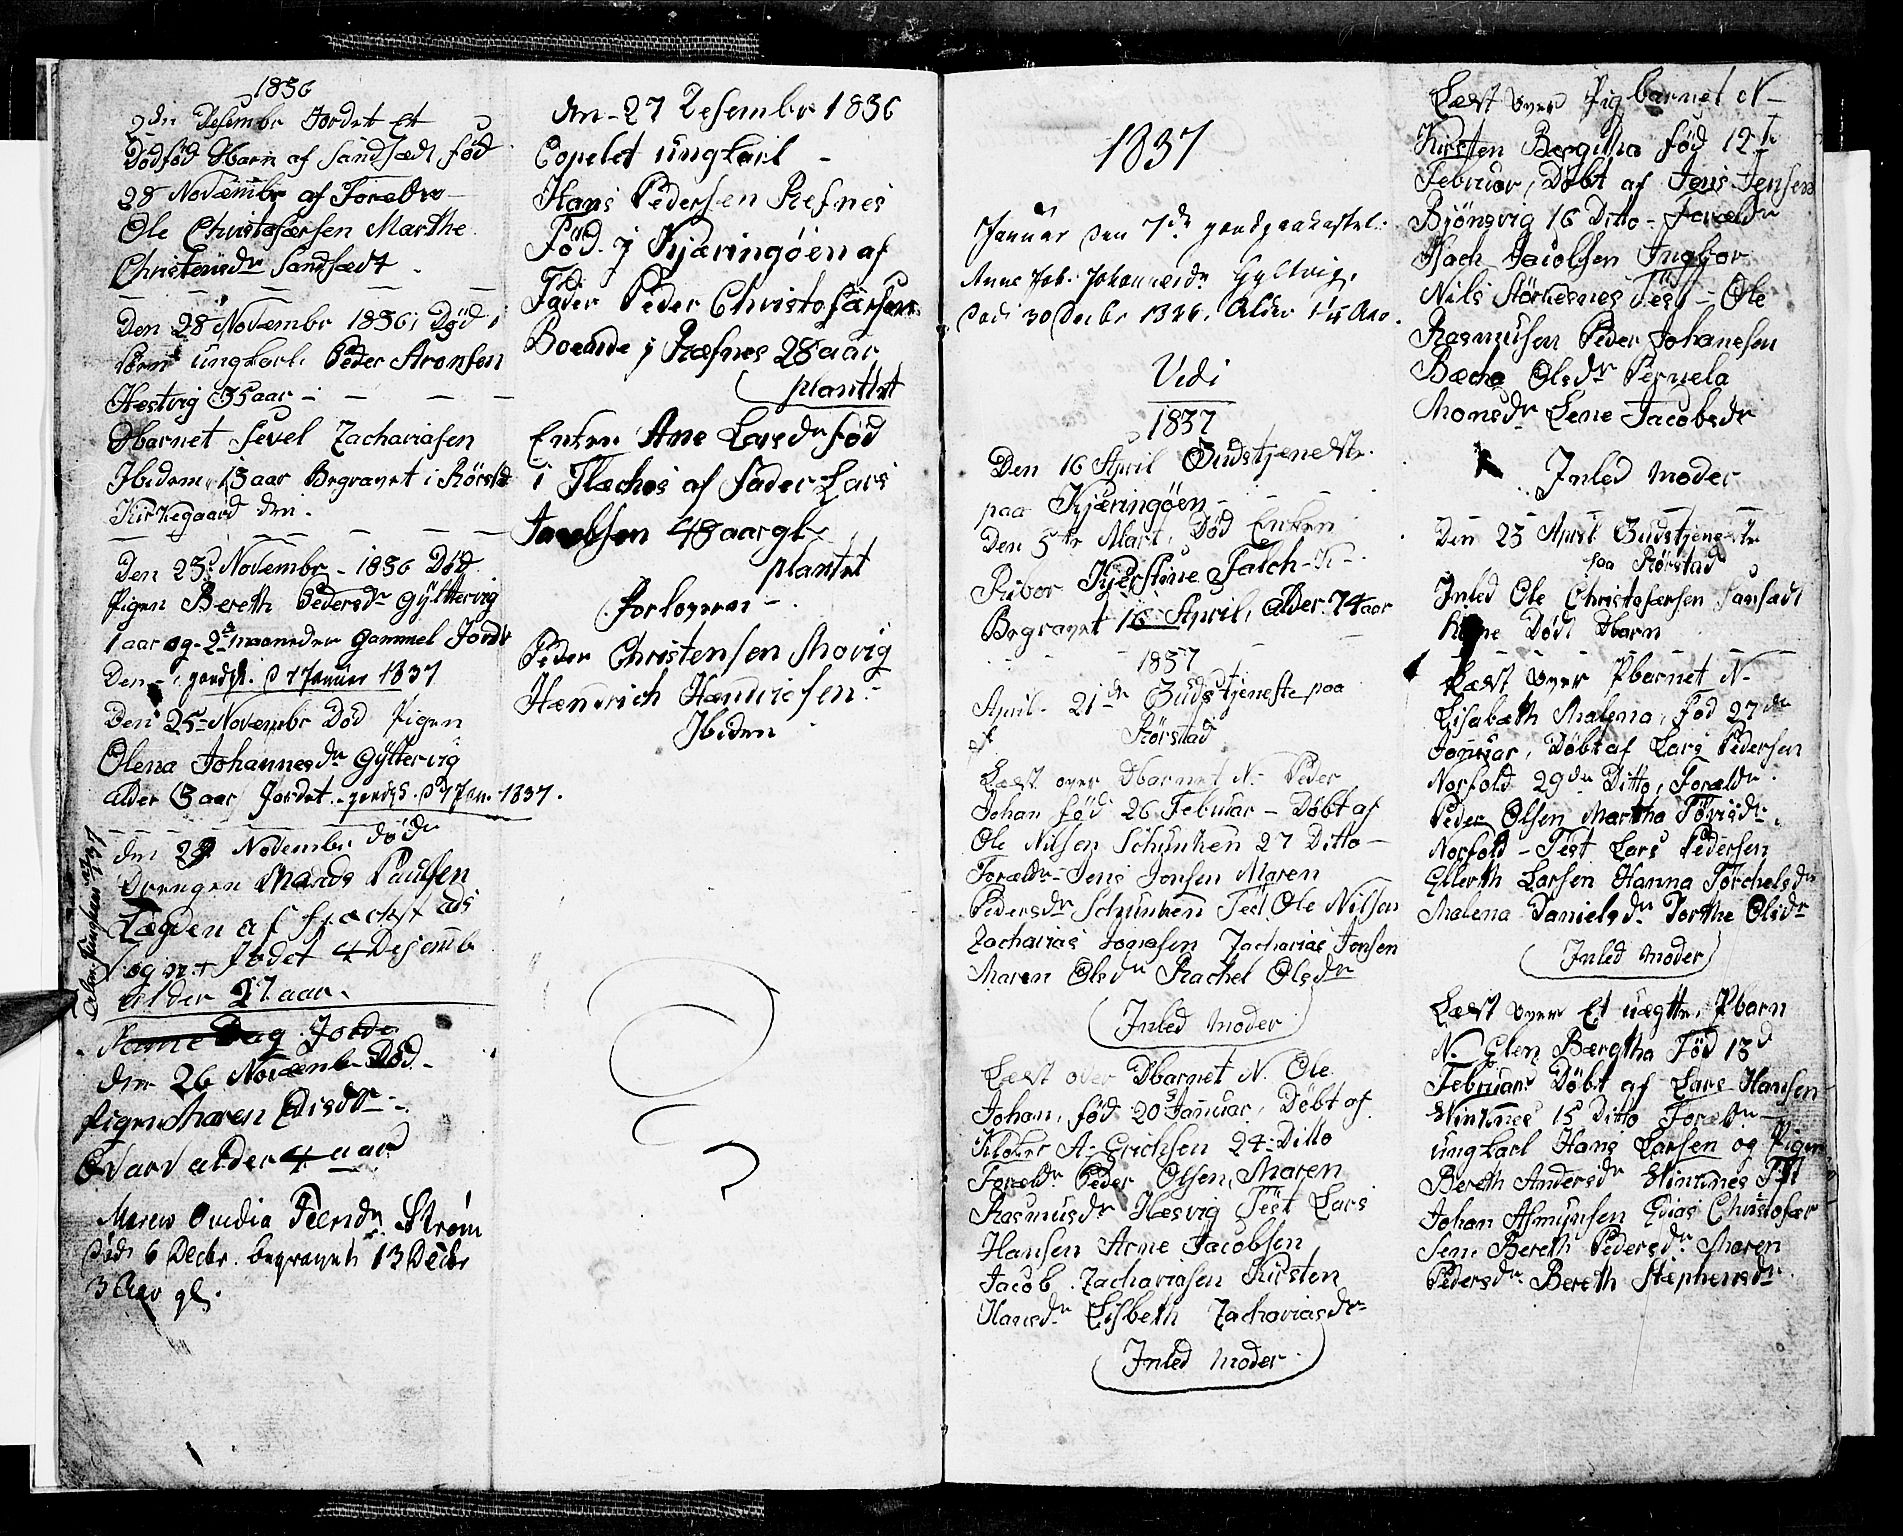 1836
2den Desembr Jordet Et
Dödfød Dbarn af Sandsædt fød
28 Novembr af Forældre
Ole Christofærsen Marthe
Christensdr Sandsædt
Den 28 Novembr 1836 Død
ungkarl Peder Aronsen
Hestvig 35 aar
Dbarnet Sevel Zachariasen
Ibidem 13 aar Begravet i Rörstd
Kirkegaard den
Den 23 Novembr 1836 Død
Pigen Bereth Pedersdr Gÿltervig
1 aar og 2 maaneder Gammel Jordt
Den 7 Januar 1837
Den 25 Novembr Død Pigen
Olena Johannesdr Gÿltervig
alder 3 aar Jordet 7 Jan 1837.
den 28 Novembr døde
Drengen Mands Paulsen
Lægden af
Sognet Jodet 4 Desembr
Alder 27 aar.
Same Dag Jorde
den 26 Novemb Død
Pigen Maren Elisdr
Qvarv alder 4 aar
Maren Ovedia Strøm
død 6 Decbr. begravet 13 Decbr
3 Aar gl.
den 27 Desembr 1836
Copelet ungkarl
Hans Pedersen Refnes
Fød j Kjæringöen af
Fader Peder Christofærsen
Boende j Ræfnes 28 aar
plantet
Enken Ane Larsdr fød
i Flæches af Fader Lars
Jacobsen 48 aar gl
plantet
Forloveren
Peder Christensen Movig
Hændrich Hændricsen
Ibidem
1837
Januar den 7de
Anne Johannesdr Gyltvig,
død 30 Decbr 1836, Alder Aar.
Vidi
1837
Den 16 April Gudstjeneste
paa Kjæringöen
Den 5te Mart. Død Enken
Riber Kjerstine Falch
Begravet 16 April, alder 74 aar
1837
April 21de Gudstjeneste paa
Rörstad
Læst over Dbarnet N. Peder
Johan fød 26 Februar Döbt af
Ole Nilsen Schunken 27 Ditto
Forældr Jens Jonsen Maren
Pedersdr Schunken Test Ole Nilsen
Zacharias Jonasen Zacharias Jonsen
Maren Olsdr Rachel Olsdr
Inled Moder
Læst over Dbarnet N. Ole
Johan, fød 20 Januar, Döbt af
Klokr A. Erichsen 24 Ditto
Foreldr Peder Olsen, Maren
Rasmusdr Hæsvig Test Lars
Hansen Arne Jacobsen
Jacob Zachariasen Kirsten
Hansdr Lisbeth Zachariasdr
Inled Moder
Læst over Pigbarnet N
Kirsten Bergitha fød 12te
Februar, Döbt af Jens Jensen
Bjöngvig 16 Ditto Forældr
Isach Jacobsen Ingbor
Nils Störkesnes Test Ole
Rasmusen Peder Johanesen
Bæcha Olsdr Pernela
Monsdr Lene Jacobsdr
Inled Moder
Den 23 April Gudstjeneste
paa Rörstad
Inled Ole Christofærsen Sansadt
Kone Död Dbarn
Læst över Pbarnet N
Lisabæth Malena, Fød 27de
Januar, Döbt af Lars Pedersen
Norfold 29de Ditto, Foræld
Peder Olsen Martha Törisdr
Norfold Test Lars Pedersen
Ellerth Larsen Hanna Torchelsdr
Malena Danielsdr Dorthe Olsdr
Inled Moder
Læst över Et uægtte Pbarn
N. Elen Bærgtha Fød 13d
Februar Döbt af Lars Hansen
Vintnnes 15 Ditto Forældr
ungkarl Hans Larsen og Pigen
Bereth Andersdr Vintnnes Tst
Johan Asmunsen Elias Christofær
Sen Bereth Pedersdr Maren
Pedersdr Bereth Stæphensdr